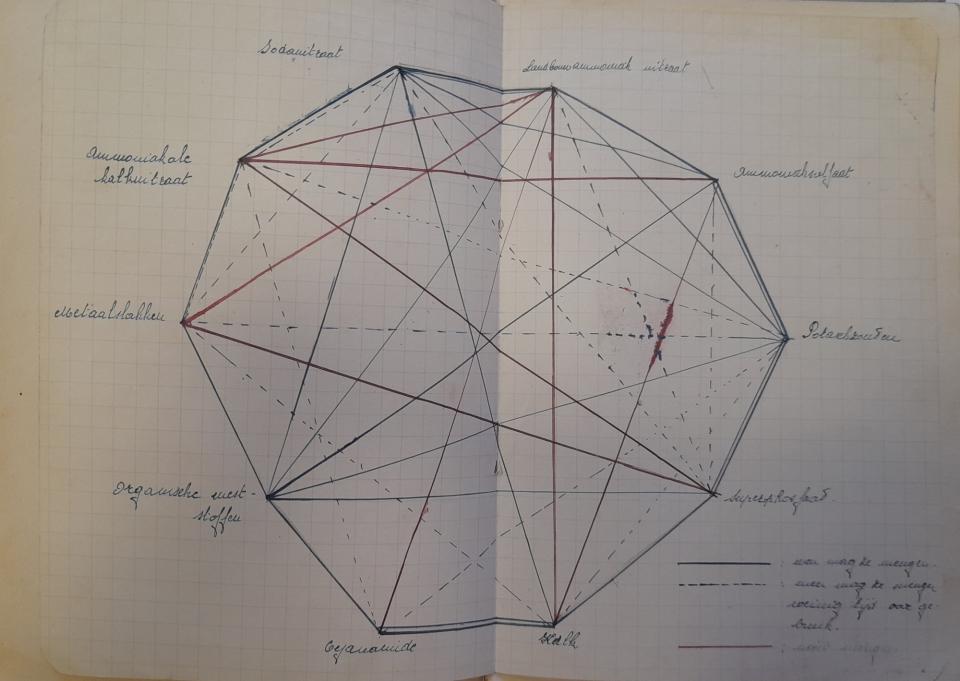 Sodanitraat
Landbouwammoniak nitraat
Ammoniakale
kalknitraat
Ammoniaksulfaat
Metaalslakken
Potaschzouten
Organische mest-
stoffen
Superphosfaat.
Cyanamide
Kalk
: men mag ze mengen.
: men mag ze mengen
weinig tijd voor ge-
bruik.
: nooit mengen.